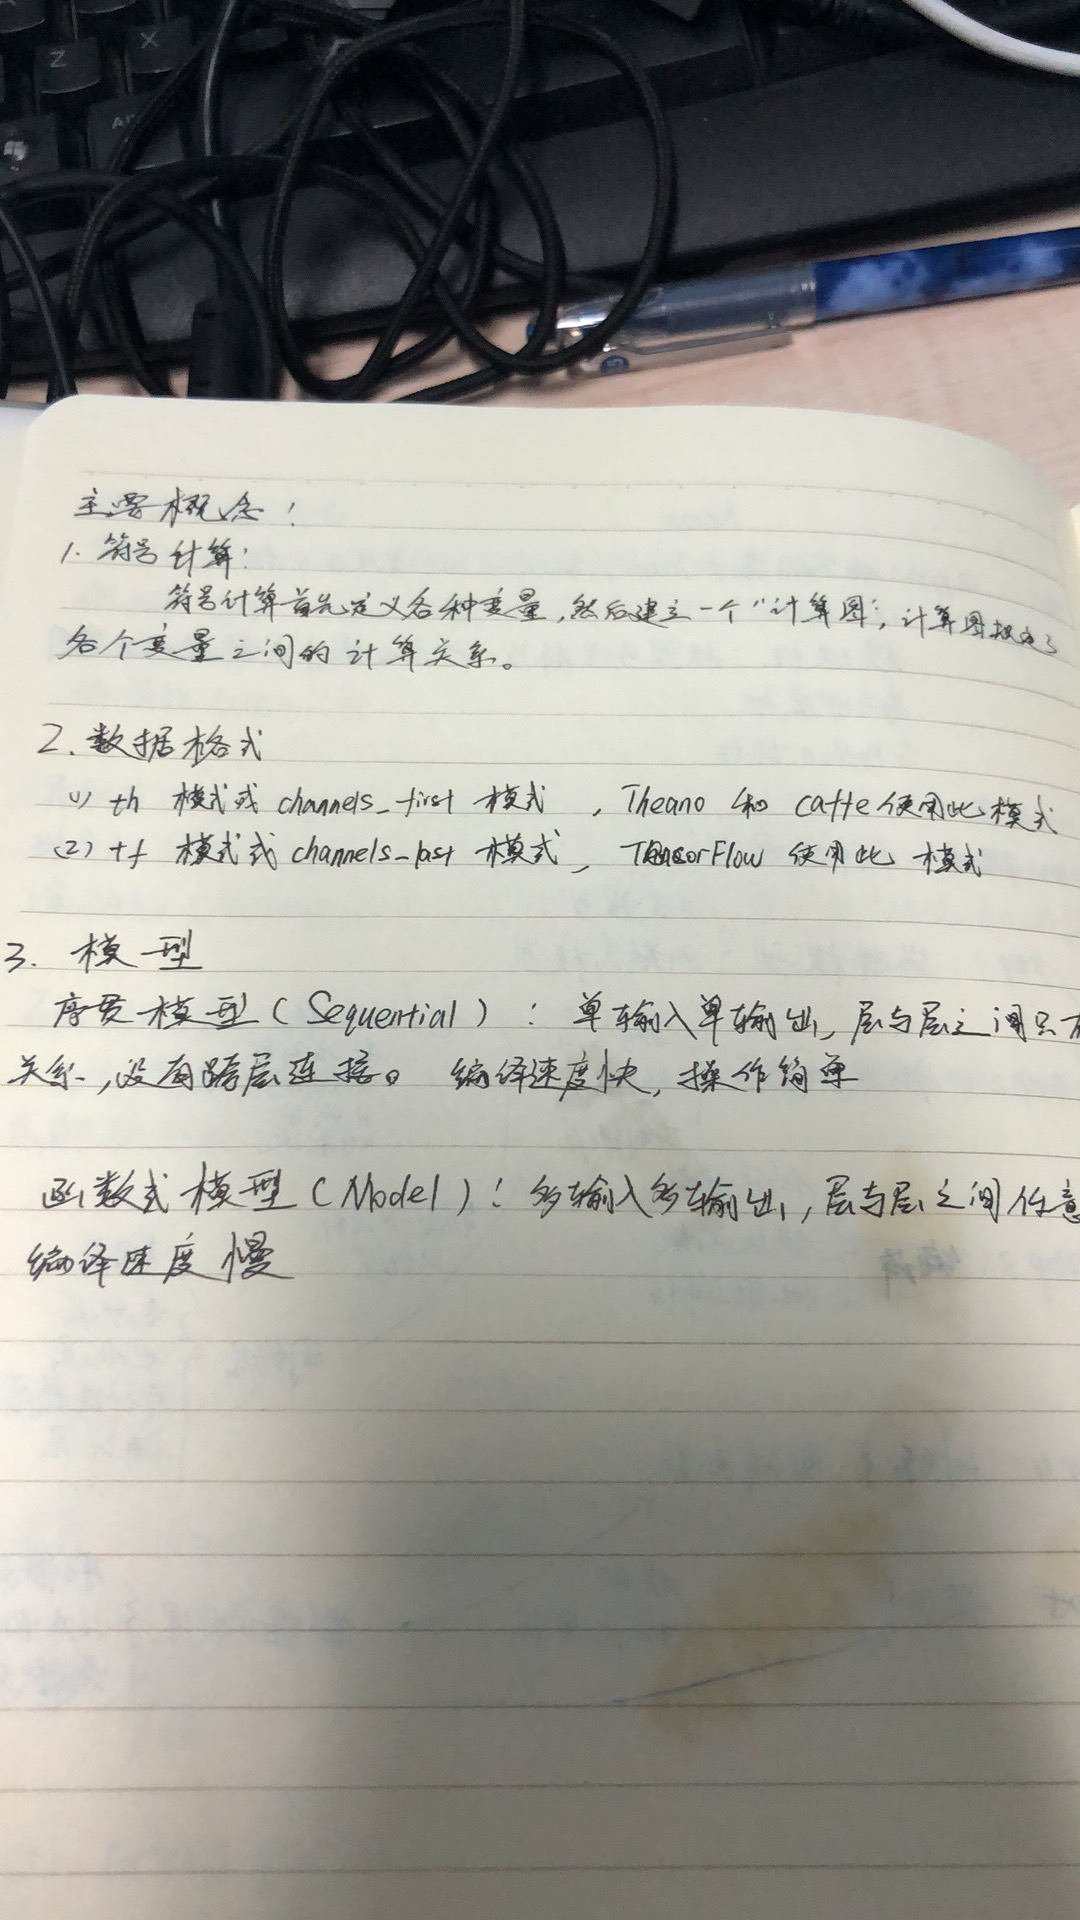 Z X
Al
主要概念：
1. 符号计算：
符号计算首先定义各种变量，然后建立一个"计算图"，计算图规定了
各个变量之间的计算关系。
2. 数据格式
(1) th 模式或 channels_first 模式，Theano 和 caffe使用此模式
(2) tf 模式或 channels_last 模式，TensorFlow 使用此 模式
3. 模型
序贯模型 (Sequential)：单输入单输出，层与层之间只有
关系，没有跨层连接。编译速度快，操作简单
函数式模型 (Model)：多输入多输出，层与层之间任意
编译速度慢